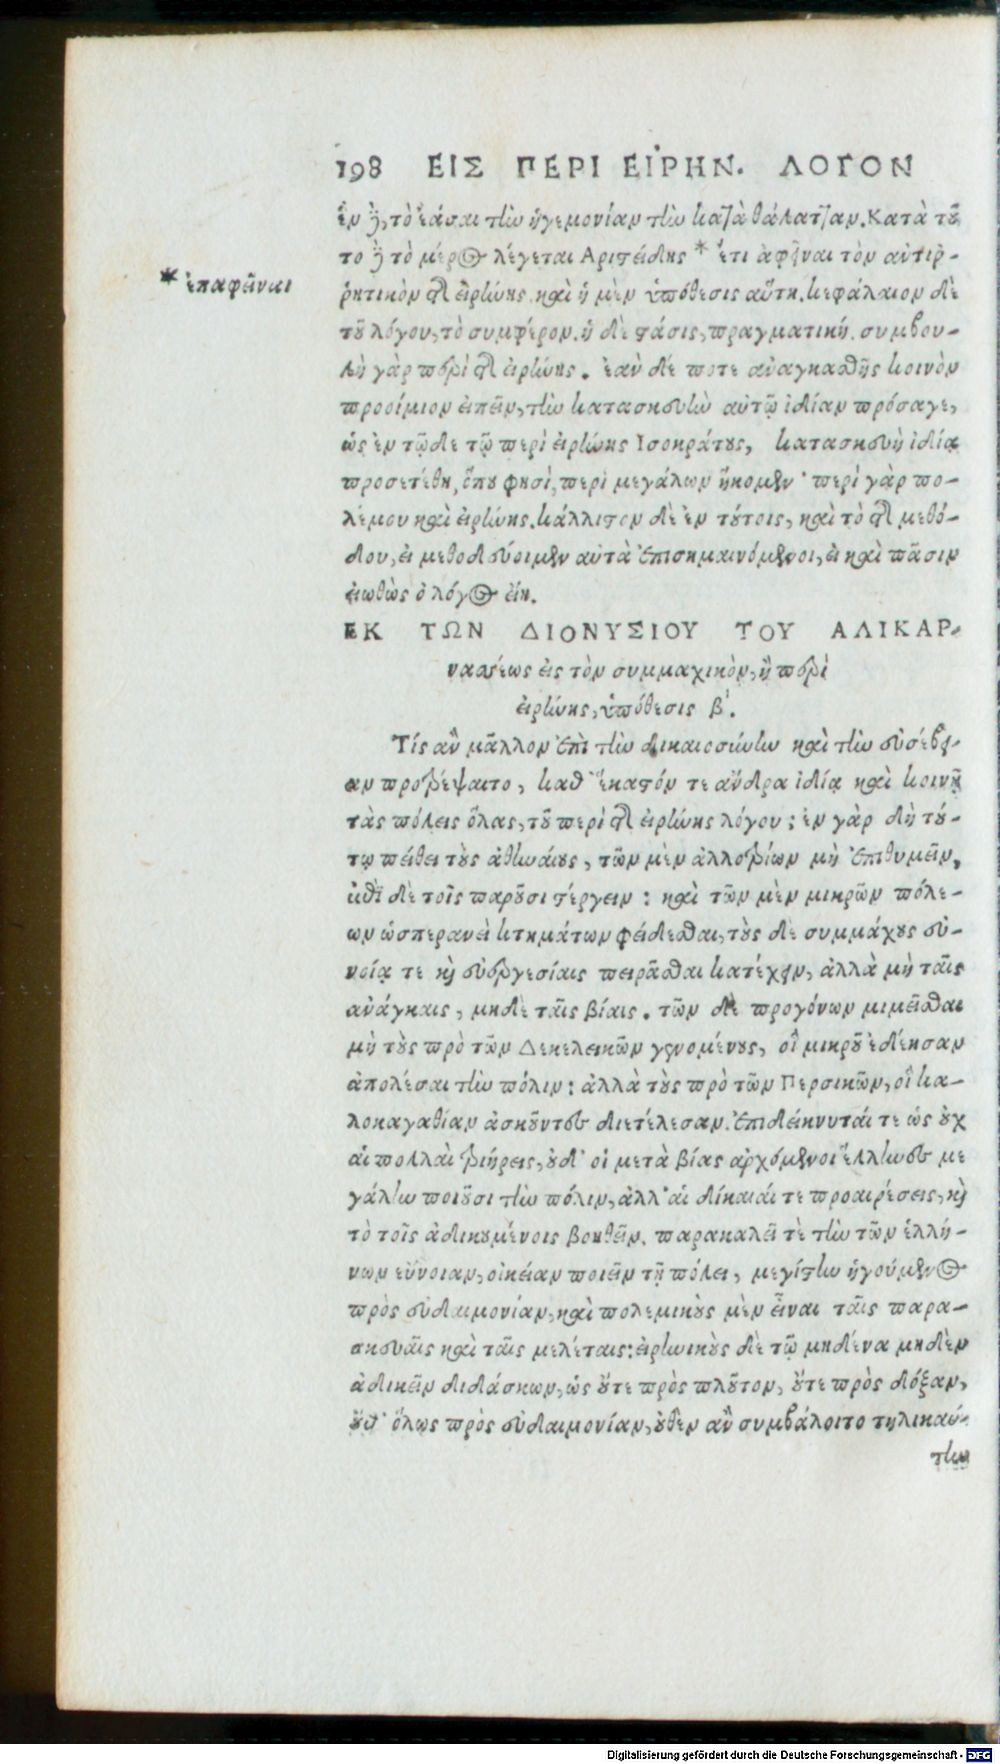 198 ΕΙΣ ΠΕΡΙ ΕΙΡΗΝ. ΛΟΓΟΝ
ἓν ᾖ, τὸ ἐάσαι τὴν ἡγεμονίαν τὴν κατὰ θάλατταν. Κατὰ τοῦ
το ᾖ τὸ μέρος λέγεται Αριστείδης * ἔτι ἀφῆναι τὸν αὐτιρ-
* ἐπαφεῖναι
ῥητικὸν τῆς εἰρήνης καὶ ἡ μὲν ὑπόθεσις αὕτη. κεφάλαιον δὲ
τοῦ λόγου, τὸ συμφέρον. ἡ δὲ στάσις, πραγματική. συμβου-
λὴ γὰρ περὶ τῆς εἰρήνης. ἐὰν δέ ποτε ἀναγκασθῇς κοινὸν
προοίμιον εἰπεῖν, τὴν κατασκευὴν αὐτῷ ἰδίαν πρόσαγε,
ὡς ἐν τῷδε τῷ περὶ εἰρήνης Ισοκράτους, κατασκευὴ ἰδία
προσετέθη, ὅπου φησὶ, περὶ μεγάλων ἥκομεν· περὶ γὰρ πο-
λέμου καὶ εἰρήνης. κάλλιστον δὲ ἐν τούτοις, καὶ τὸ τῆς μεθό-
δου, εἰ μεθοδεύοιμεν αὐτὰ ἐπισημαινόμενοι, εἰ καὶ πᾶσιν
εἰωθὼς ὁ λόγος εἴη.
ΕΚ ΤΩΝ ΔΙΟΝΥΣΙΟΥ ΤΟΥ ΑΛΙΚΑΡ-
νασέως εἰς τὸν συμμαχικὸν, ἢ περὶ
εἰρήνης, ὑπόθεσις β΄.
Τίς ἂν μᾶλλον ἐπὶ τὴν δικαιοσύνην καὶ τὴν εὐσέβει-
αν προτρέψαιτο, καθ᾽ ἕκαστόν τε ἄνδρα ἰδίᾳ καὶ κοινῇ
τὰς πόλεις ὅλας, τοῦ περὶ τῆς εἰρήνης λόγου; ἐν γὰρ δὴ τού-
τῳ πείθει τοὺς ἀθηναίους, τῶν μὲν ἀλλοτρίων μὴ ἐπιθυμεῖν,
ἐπὶ δὲ τοῖς παροῦσι στέργειν: καὶ τῶν μὲν μικρῶν πόλε-
ων ὡσπερανεὶ κτημάτων φείδεσθαι, τοὺς δὲ συμμάχους εὐ-
νοίᾳ τε καὶ εὐεργεσίαις πειρᾶσθαι κατέχειν, ἀλλὰ μὴ ταῖς
ἀνάγκαις, μηδὲ ταῖς βίαις. τῶν δὲ προγόνων μιμεῖσθαι
μὴ τοὺς πρὸ τῶν Δεκελεικῶν γενομένους, οἳ μικροῦ ἐδέησαν
ἀπολέσαι τὴν πόλιν: ἀλλὰ τοὺς πρὸ τῶν Περσικῶν, οἳ κα-
λοκαγαθίαν ἀσκοῦντες διετέλεσαν. ἐπιδείκνυταί τε ὡς οὐχ
αἱ πολλαὶ τριήρεις, οὐδ᾽ οἱ μετὰ βίας ἀρχόμενοι ἕλληνες με
γάλην ποιοῦσι τὴν πόλιν, ἀλλ᾽ αἱ δίκαιαί τε προαιρέσεις, καὶ
τὸ τοῖς ἀδικουμένοις βοηθεῖν. παρακαλεῖ τὲ τὴν τῶν ἑλλή-
νων εὔνοιαν, οἰκείαν ποιεῖν τῇ πόλει, μεγίστην ἡγούμενος
πρὸς εὐδαιμονίαν, καὶ πολεμικοὺς μὲν εἶναι ταῖς παρα-
σκευαῖς καὶ ταῖς μελέταις: εἰρηνικοὺς δὲ τῷ μηδένα μηδὲν
ἀδικεῖν διδάσκων, ὡς οὔτε πρὸς πλοῦτον, οὔτε πρὸς δόξαν,
οὔθ᾽ ὅλως πρὸς εὐδαιμονίαν, οὐθὲν ἂν συμβάλοιτο τηλικαύ-
την
Digitalisierung gefördert durch die Deutsche Forschungsgemeinschaft - DFG